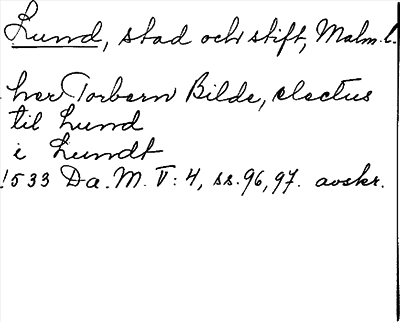 Lund, stad och stift, Malm. l.
her Torbern Bilde, electus
til Lund
i Lundt
1533 Da. M. V: 4, ss. 96, 97. avskr.